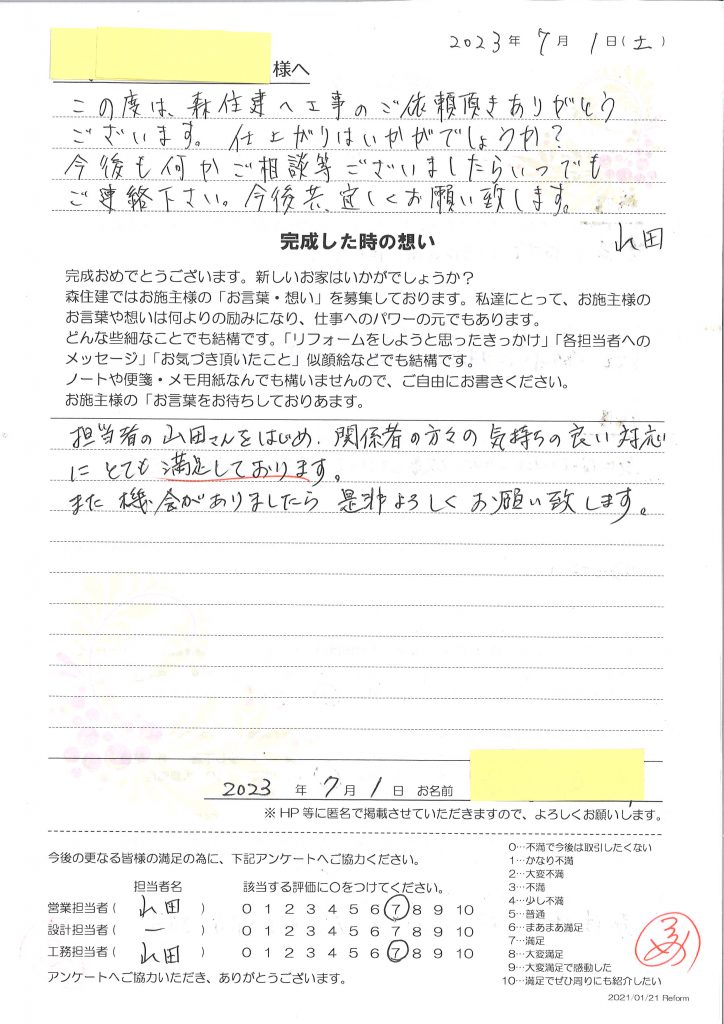 2023年 7月 1日(土)
様へ
この度は、森住建へ工事のご依頼頂きありがとう
ございます。仕上がりはいかがでしょうか?
今後も何かご相談等ございましたらいつでも
ご連絡下さい。今後共、宜しくお願い致します。
山田
完成した時の想い
完成おめでとうございます。新しいお家はいかがでしょうか?
森住建ではお施主様の「お言葉・想い」を募集しております。私達にとって、お施主様の
お言葉や想いは何よりの励みになり、仕事へのパワーの元でもあります。
どんな些細なことでも結構です。「リフォームをしようと思ったきっかけ」「各担当者への
メッセージ」「お気づき頂いたこと」似顔絵などでも結構です。
ノートや便箋・メモ用紙なんでも構いませんので、ご自由にお書きください。
お施主様の「お言葉をお待ちしておりあます。
担当者の山田さんをはじめ、関係者の方々の気持ちの良い対応
にとても満足しております。
また機会がありましたら是非よろしくお願い致します。
2023 年 7月 1日 お名前
※HP等に匿名で掲載させていただきますので、よろしくお願いします。
今後の更なる皆様の満足の為に、下記アンケートへご協力ください。
担当者名 該当する評価に〇をつけてください。
営業担当者( 山田 ) 0 1 2 3 4 5 6 7 8 9 10
設計担当者( ー ) 0 1 2 3 4 5 6 7 8 9 10
工務担当者( 山田 ) 0 1 2 3 4 5 6 7 8 9 10
アンケートへご協力いただき、ありがとうございます。
0…不満で今後は取引したくない
1…かなり不満
2…大変不満
3…不満
4…少し不満
5…普通
6…まあまあ満足
7…満足
8…大変満足
9…大変満足で感動した
10…満足でぜひ周りにも紹介したい
2021/01/21 Reform